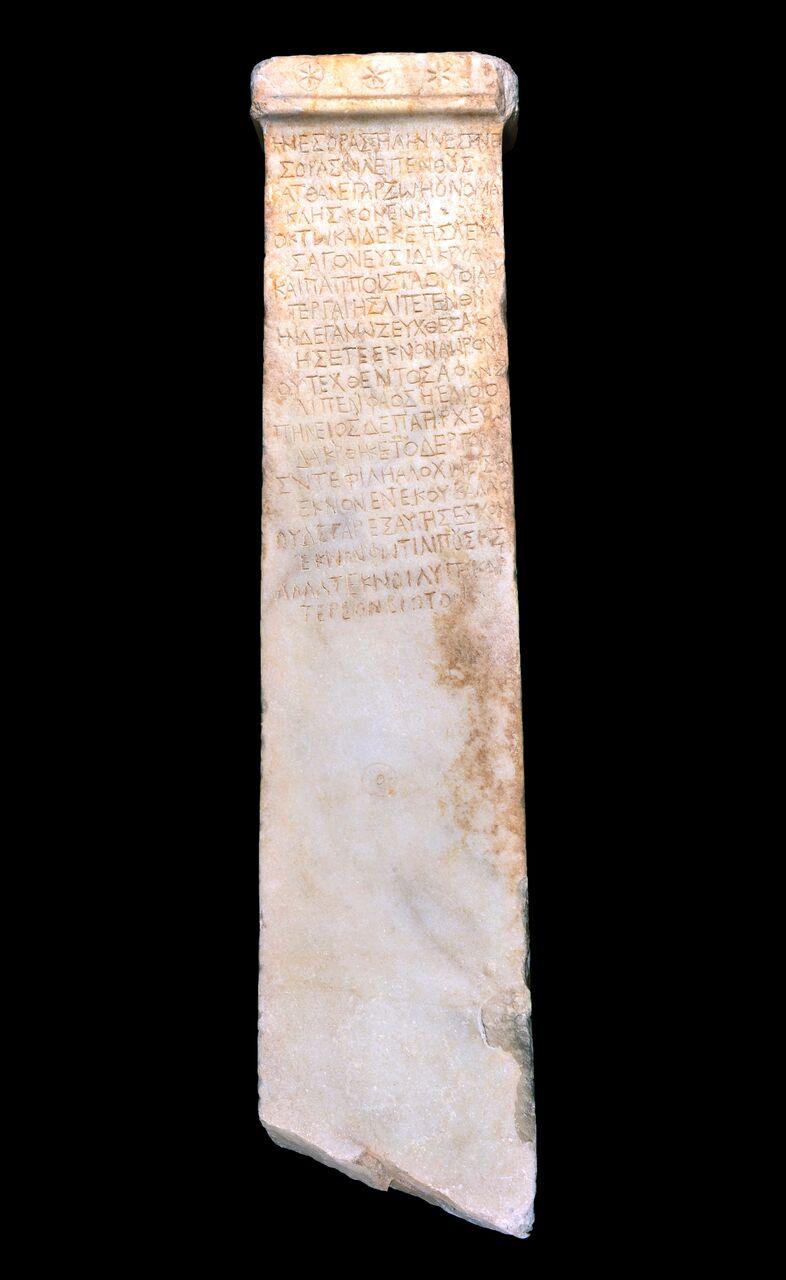 ΗΝΕΣΟΡΑΣΣΤΗΛΗΝΜΕΣΤΗΝ
ΣΟΥΑΣΦΙΛΕΠΕΝΘΟΥΣ
ΚΑΤΘΑΝΕΓΑΡΖΩΗΟΥΝΟΜΑ
ΚΛΗΣΚΟΜΕΝΗ
ΟΚΤΩΚΑΙΔΕΚΕΤΗΣΛΕΥΑ
ΣΑΓΟΝΕΥΣΙΔΑΚΡΥΑ
ΚΑΙΠΑΠΠΟΙΣΤΑΟΜΟΙΑΘΥ
ΤΕΡΓΑΙΗΣΛΙΠΕΤΕΝΘΗ
ΗΝΔΕΓΑΜΩΖΕΥΧΘΕΣΑΚΥ
ΗΣΕΤΕΕΚΝΟΝΑΩΡΟΝ
ΟΥΤΕΧΘΕΝΤΟΣΑΦΩΝΟΣ
ΛΙΠΕΝΦΑΟΣΗΕΛΙΟΥ
ΠΗΛΕΙΟΣΔΕΠΑΤΗΡΧΕΥΩΝ
ΔΑΚΡΘΗΚΕΤΟΔΕΡΓΟΝ
ΣΥΝΤΕΦΙΛΗΑΛΟΧΩ
ΕΚΝΟΝΕΝΕΚΟΥΚΑΛΛΟ
ΟΥΔΕΓΑΡΕΞΑΥΤΗΣΕΣΧΟΝ
ΕΚΝΟΝΦΩΤΙΛΙΠΟΥΣΗΣ
ΑΛΛΑΤΕΚΝΟΙΛΥΠΗΚΑΡ
ΤΕΡΕΟΝΒΙΟΤΟΝ